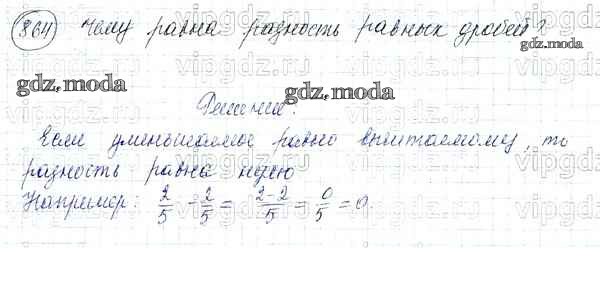 864 Чему равна разность равных дробей?
gdz.moda
gdz.moda
gdz.moda
Решение.
Если уменьшаемое равно вычитаемому, то
разность равна нулю
Например: 2/5 - 2/5 = 2-2/5 = 0/5 = 0.
vipgdz.ru